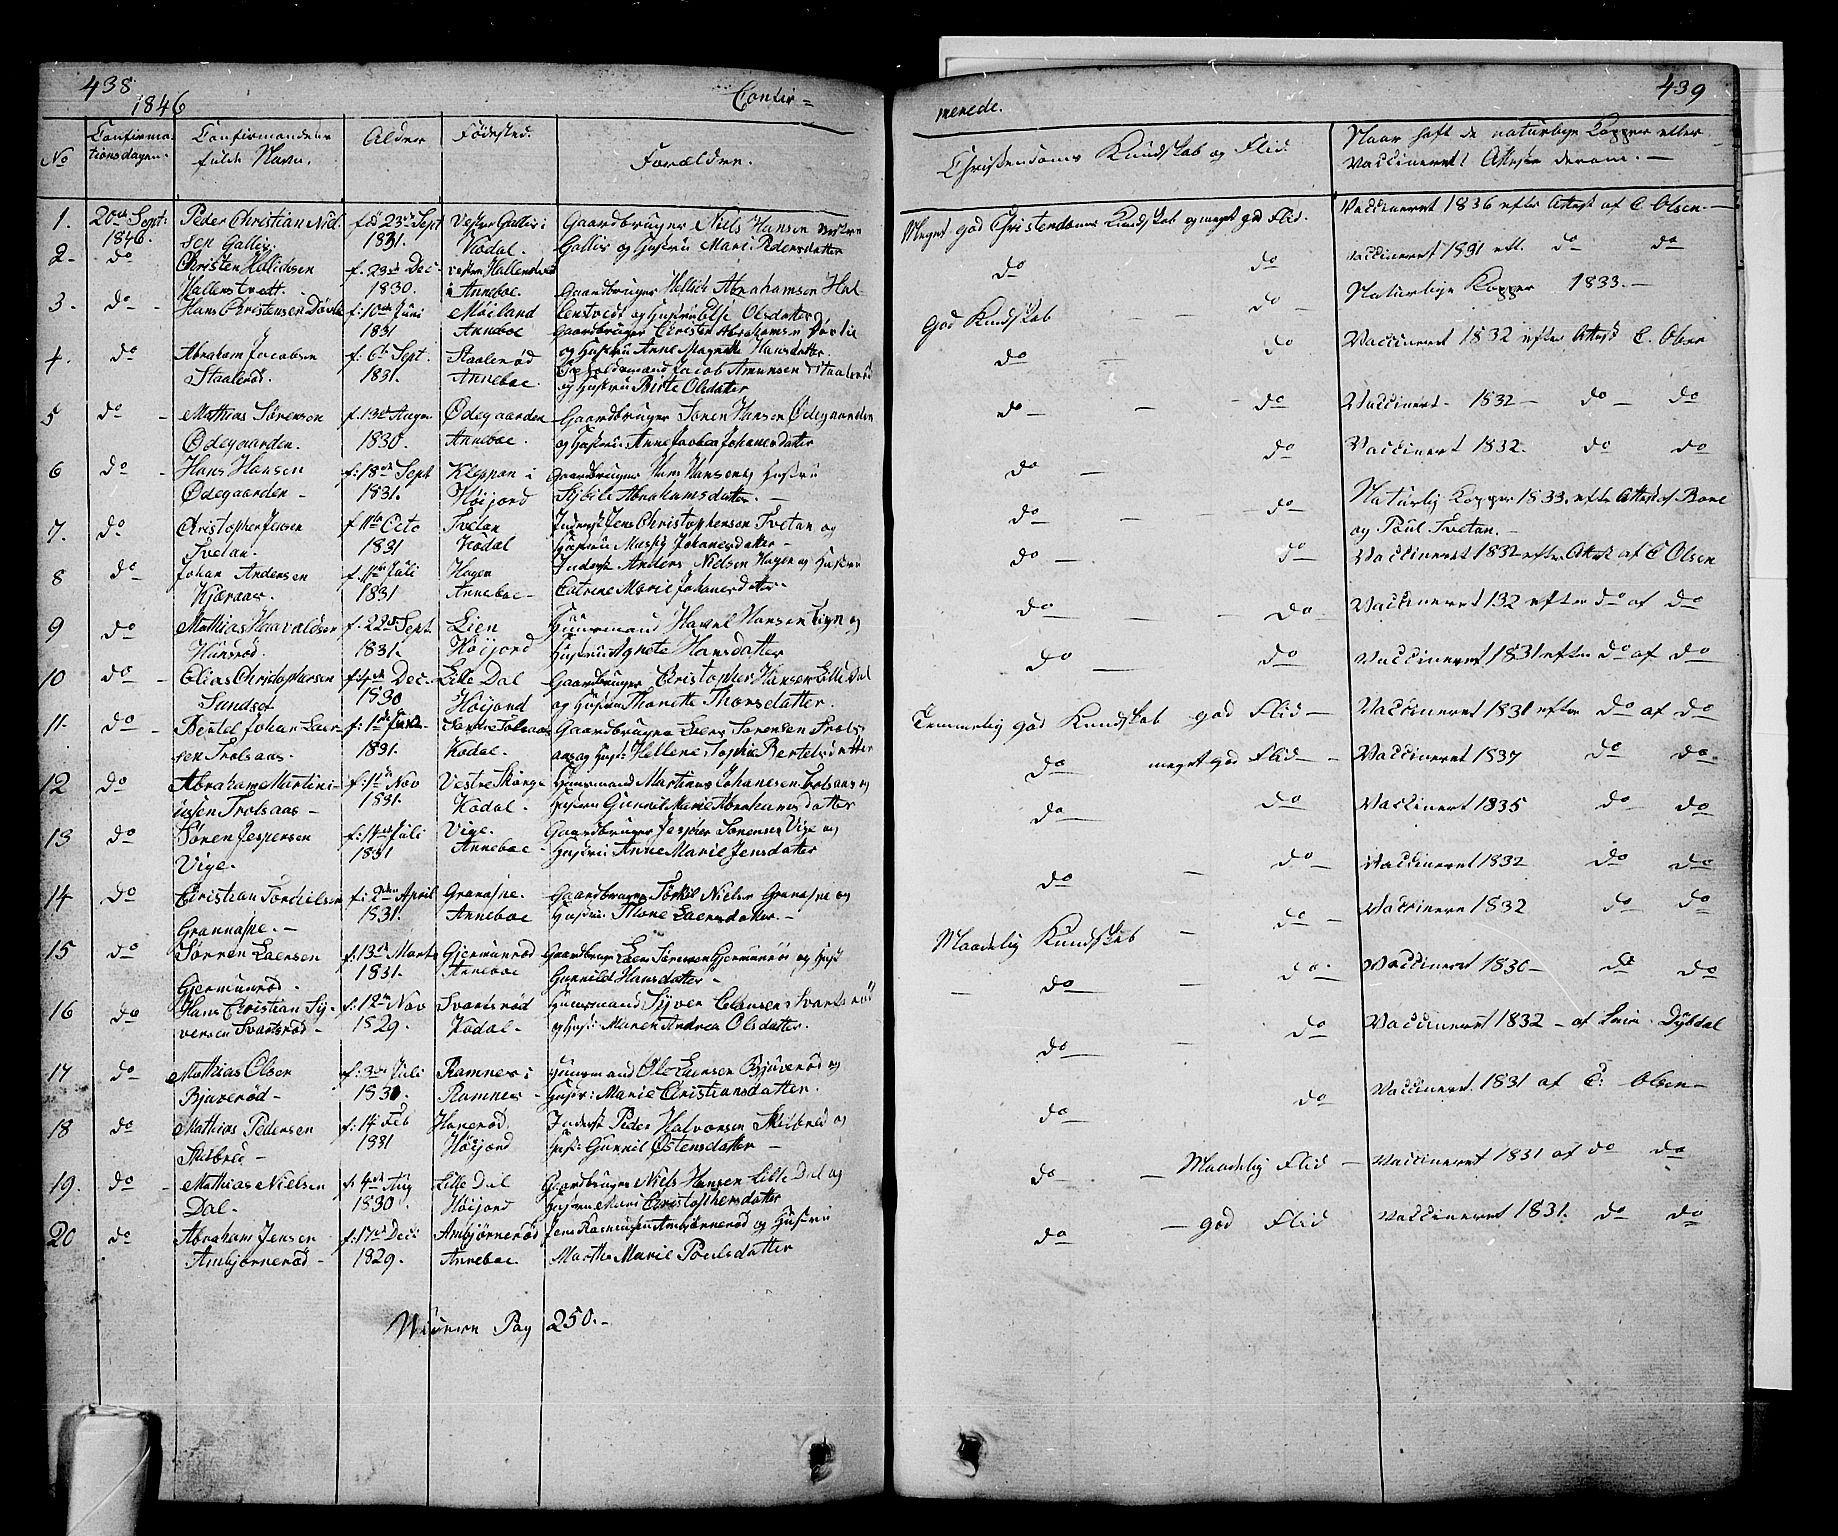 438
1846
Confir=
No
Confirma-
tionsdagen.
Confirmandens
fulde Navn.
Alder
Fødested.
Forældre.
1. 20de Sept: 1846. Peder Christian Niel- fød 23de Sept Vestre Gallis i Gaardbruger Niels Hansen vestre
sen Gallis. 1831. Kodal. Gallis og Hustru Mari Pedersdatter
2- do Christen Hellichsen f. 23de Dec- vestre Hallenstvedt
Hallenstvett. 1830. i Anneboe. Gaardbruger Hellich Abrahamsen Hal-
lenstvedt og Hustru Else Olsdatter
3. do - Hans Christensen f: 10de Juni Møiland Gaardbruger Christen Abrahamsen
1831 Anneboe og Hustru Anne Magnette Hansdatter
4. do Abraham Jacobsen f: 6te Sept. Staalerød Jacob Amunsen Staalerød
Staalerød. 1831. Anneboe. og Hustru Birte Olsdatter
5 do - Mathias Sørensen f. 13de Augu Ødegaarden Gaardbruger Søren Hansen Ødegaarden
Ødegaarden. 1830. Anneboe. og Hustru: Anne Jacobea Johanesdatter
6 do - Hans Hansen f: 18de Sept Kleppan i Gaardbruger Hans Hansens Hustru
Ødegaarden - 1831. Høijord Sybile Abrahamsdatter. -
7. do Christopher Jensen f 11te Octo Tvetan Inderst Jens Christophersen Tvetan og
Tvetan. 1831 Kodal Hustru Massig Johanesdatter -
8 do Johan Andersen f. 11te Juli Hagen Inderst Anders Nielsen Hagen og Hustru
Kjæraas. 1831 Anneboe- Catrine Marie Johanesdatter
9 do Mathias Haavaldsen f: 22de Sept Lien Huusmand Havel Hansen og
Hansrød. 1831. Høijord Hustru Agnete Hansdatter
10 do - Elias Christophersen f: Dec. Lille Dal Gaardbruger Christopher Hansen Lille Dal
Sundset 1830 Høijord og Hustru Thonette Thorsdatter.
11. do - Bertel Johan Laer- f: 1ste Gaardbruger Laers Sørensen Trols-
sen Trolsaas. 1831. Kodal. aas og Hust: Hellene Sophie Bertelsdatter
12 do Abraham Martini- f: 1ste Nov Vestre Skorge Huusmand Martinus Johanesen Trolsaas og
usen Trolsaas - 1831. Kodal. Hustru Gunnil Marie Abrahamsdatter
13 do Søren Jespersen f: 14de Juli Vige. Gaardbruger Jesper Sørensen Vige og
Vige. 1831 Anneboe - Hustru Anne Marie Jensdatter
14 do Christian Torkilsen f: 2den April Granasne. Gaardbruger Torkil Nielsen Granasne og
Grannasne. - 1831. Anneboe Hustru: Thone Laersdatter. -
15 do Sørren Laersen f: 13de Marts Gjermunrød Gaardbruger Laers Sørensen Gjermunrød og Hust
Gjermunrød. 1831. Anneboe Gunnild Hansdatter -
16 do Hans Christian Sy- f: 12te Nov Svartsrød Huusmand Syver Clausen Svartsrød
versen Svartsrød - 1829. Kodal - og Hust: Maren Andrea Olsdatter.
17 do Mathias Olsen f: 3de Juli Ramnes i Huusmand Ole Laersen Bjuverød og
Bjuverød - 1830. Ramnes - Hustr: Marie Christiansdatter.
18 do Mathias Pedersen f: 14 Feb Hanerød Inderst Peder Halvorsen Skibrød og
Skibrød - 1831 Høijord Hust: Gunnil Østensdatter -
19. do - Mathias Nielsen f: 4de Aug Lille Dal Gaardbruger Niels Hansen Lille Dal og
Dal - 1830. Høijord Hustru Mari Christophersdatter
20 do Abraham Jensen f: 17de Dec: Ambjørnerød Jens Rasmussen Ambjørnerød og Hustru
Ambjørnerød - 1829. Anneboe Marthe Marie Poulsdatter
Pag 250. -
439
merede.
Christendoms Kundskab og Flid.
Naar haft de naturlige Kopper eller
vaccineret? Attest derom. -
Meget god Christendoms Kundskab og meget god Flid. Vaccineret 1836 efter Attest af C Olsen. -
do do vaccineret 1831 eft. do do
God Kundskab - - do - Naturlige Kopper 1833. -
do - do Vaccineret 1832 efter Attest C. Olsen
do - - - do Vaccineret - 1832 - do - do
do - do Vaccineret 1832. do do
do - - do Naturlig Kopper 1833. efter Attest af Bone
og Poul Tvetan. -
do - - do Vaccineret 1832 efter Attest af C Olsen
do - - do - Vaccineret 132 efter do af do
do - - do Vaccineret 1831 efter do af do
Temmelig god Kundskab god Flid - Vaccineret 1831 efter do af do
do meget god Flid - Vaccineret 1837 do do.
do - do Vaccineret 1835 do do
do - do - Vaccineret 1832 do do
Maadelig Kundskab - do - Vaccineret 1832 do do
- do - - do Vaccineret 1830 - do do
do - - do Vaccineret 1832 - af Dybdal
do do Vaccineret 1831 af C: Olsen -
do - Maadelig Flid - Vaccineret 1831 af do do
do - god Flid Vaccineret 1831. do do